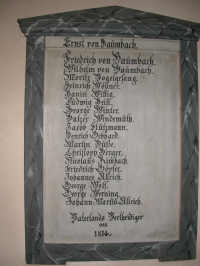 Ernst von Baumbach.
Friedrich von Baumbach.
Wilhelm von Baumbach.
Moritz Vogelgesang.
Heinrich Wollner.
Daniel Wittig.
Ludwig
George Winter.
Balzer Windemuth.
Jacob Stützmann.
Henrich Gebhard.
Martin
Christoph Berger.
Nicolaus Limbach.
Friedrich Döpfer.
Johannes Ullrich.
George Wolf.
George Berning.
Johann Martin Ullrich.
Vaterlands Vertheidiger
von
1814.